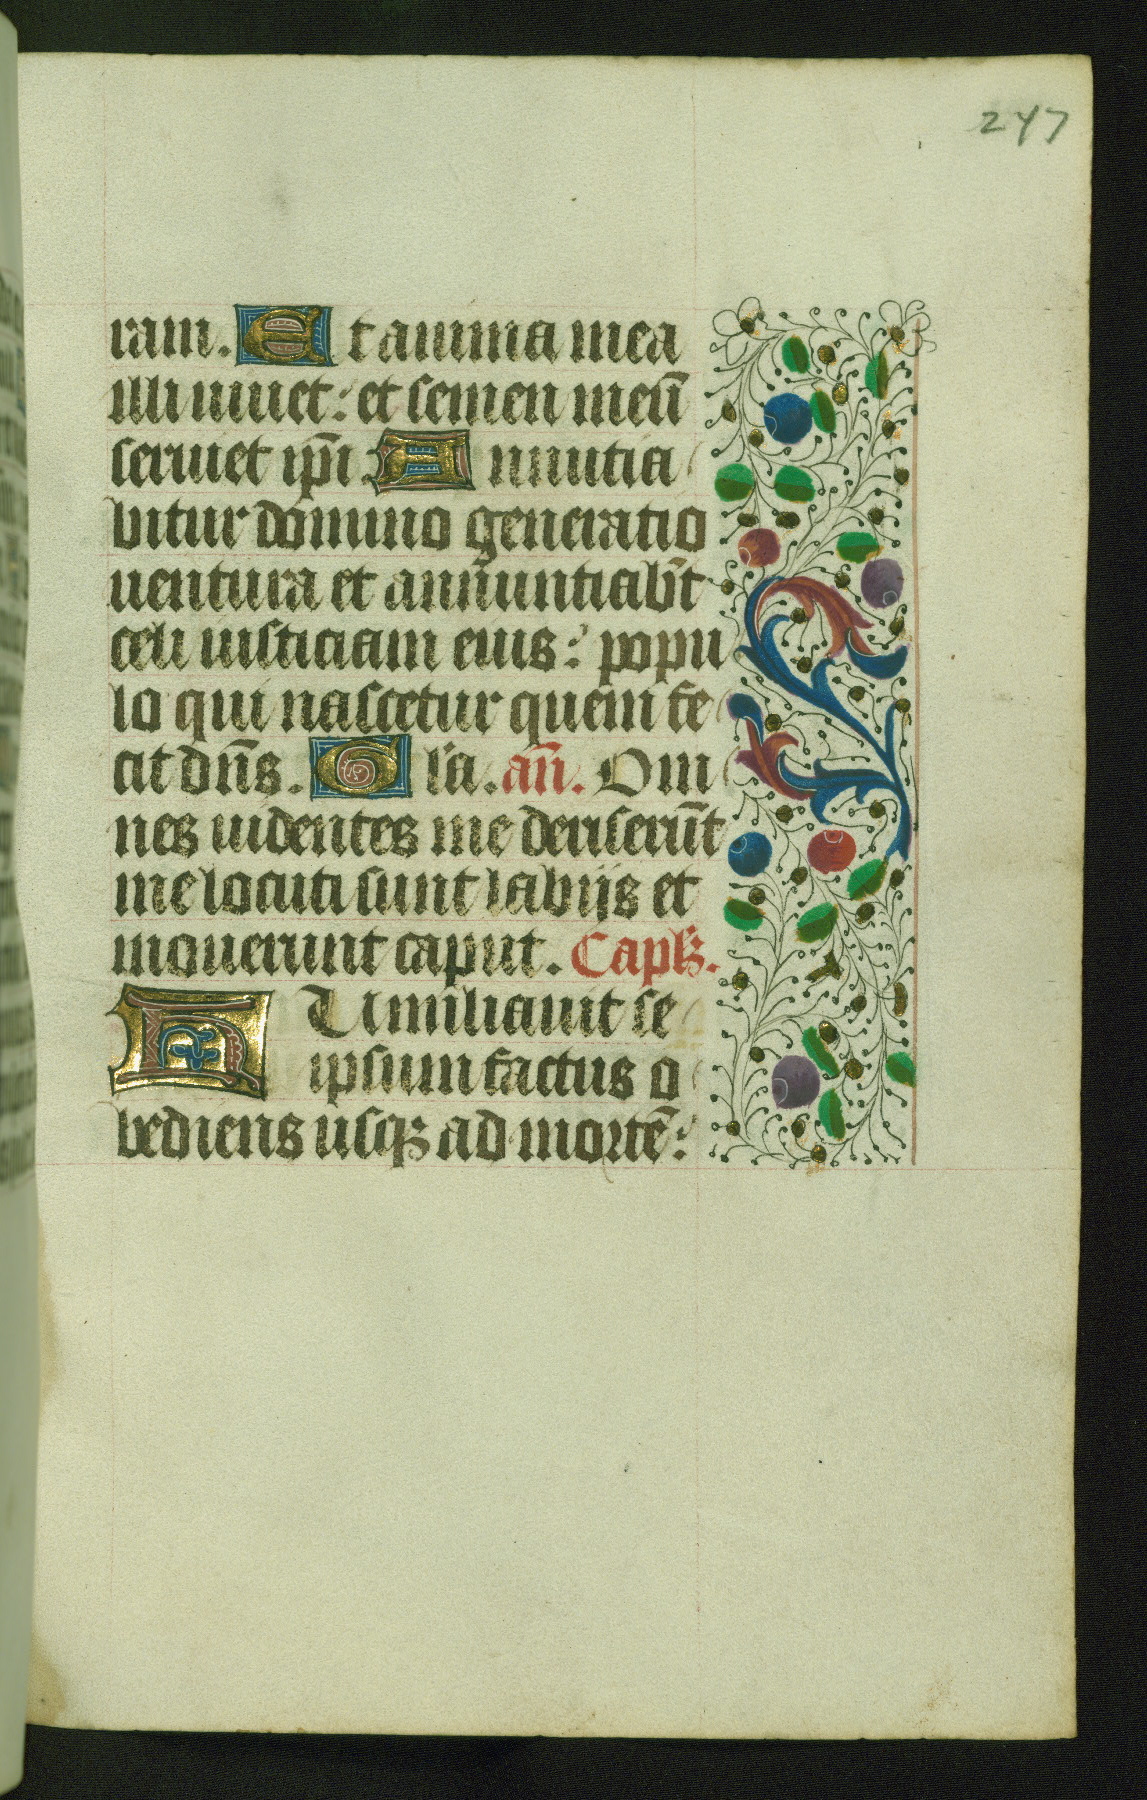 247
ram. Et anima mea
illi uiuet: et semen meū
seruiet ip̄i. Annūtia
bitur domino generatio
uentura et annuntiab̄t
celi iusticiam eius: popu
lo qui nascetur quem fe
cit dn̄s. Gl̄a. an̄. Om
nes uidentes me deriserūt
me locuti sunt labijs et
mouerunt caput. Capl̄z.
HUmiliauit se
ipsum factus o
bediens usqꝫ ad mortē: